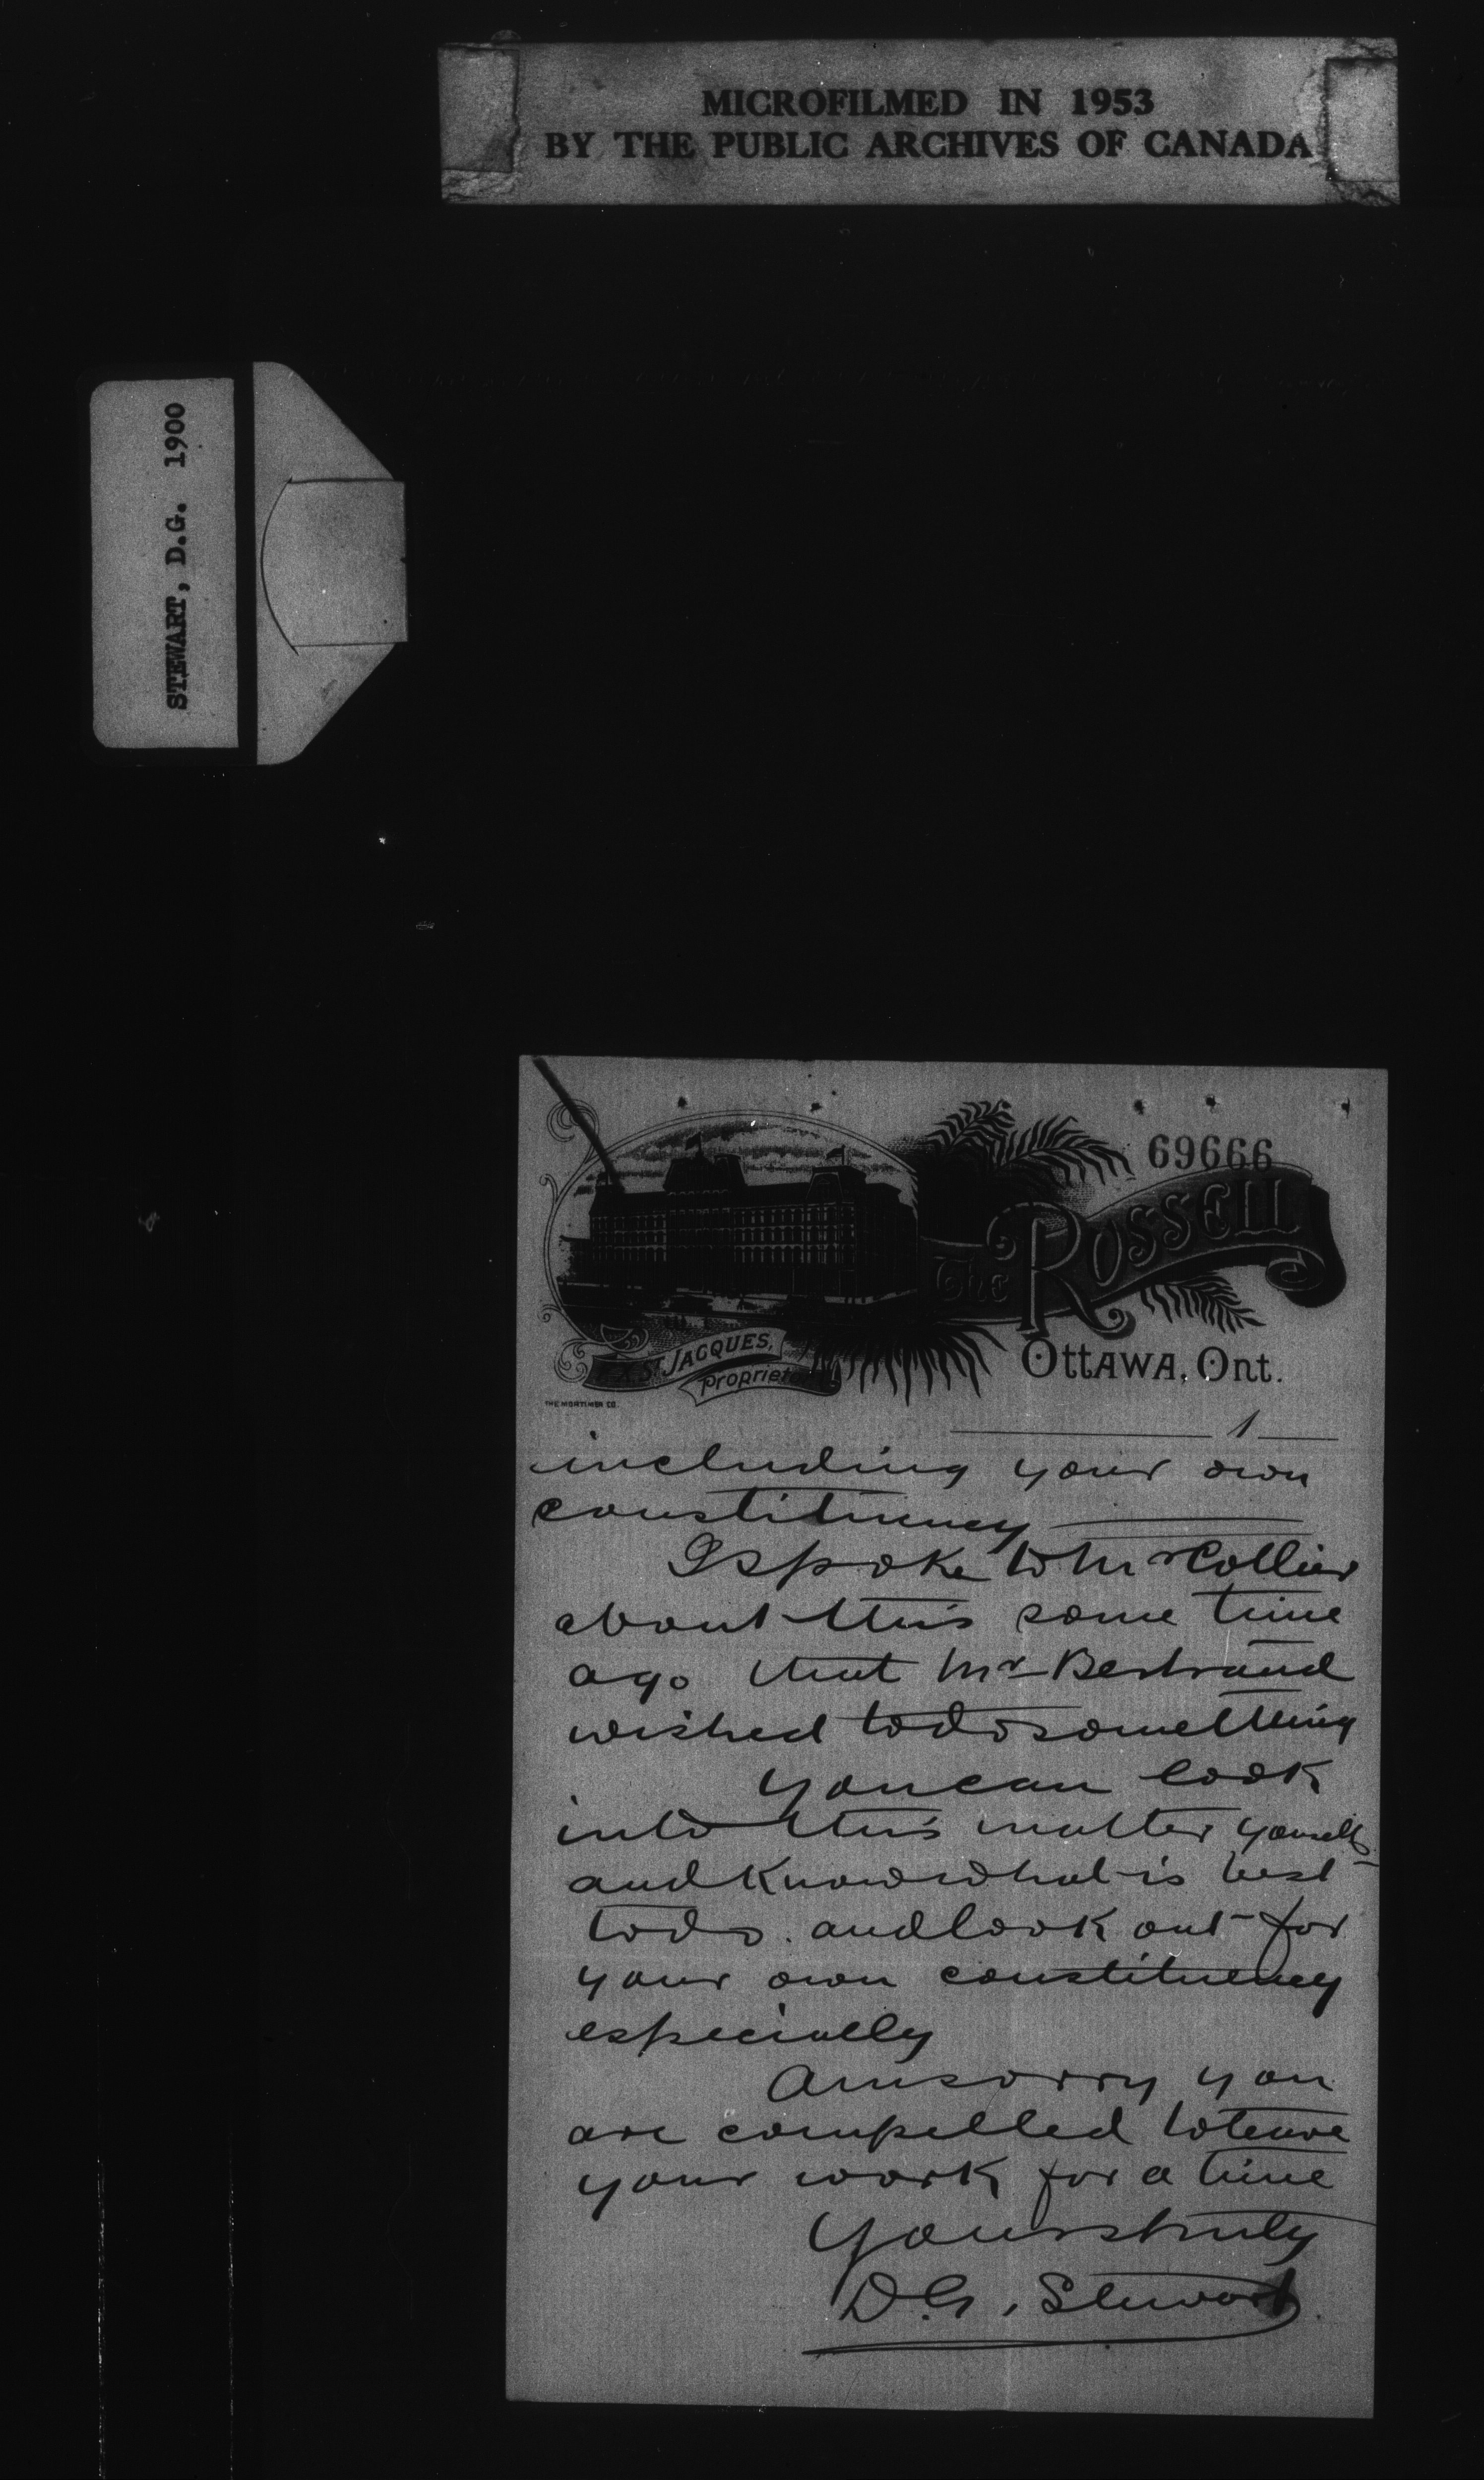 MICROFILMED IN 1953
BY THE PUBLIC ARCHIVES OF CANADA
STEWART, D.G. 1900
69666
The RUSSELL
St. JACQUES,
Proprietor
OTTAWA, Ont.
THE MORTIMER CO.
1
including your own
constituency
I spoke to Mr Collier
about this some time
ago that Mr Bertrand
wished to do something
You can look
into this matter yourself
and know what is best
to do. and look out for
your own constituency
especially
Am sorry you
are compelled to leave
your work for a time
Yours truly
D.G. Stewart